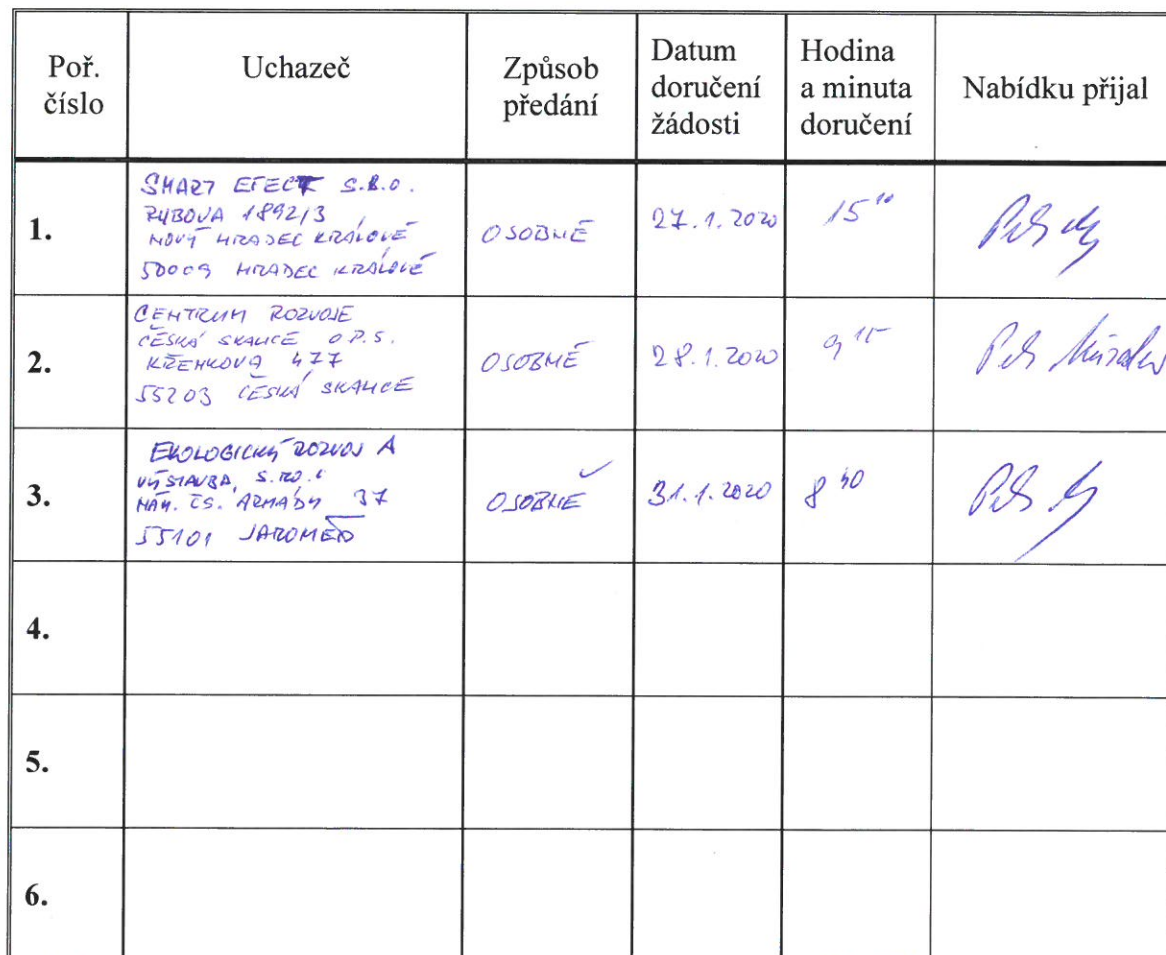 Poř. číslo
Uchazeč
Způsob předání
Datum doručení žádosti
Hodina a minuta doručení
Nabídku přijal
1.
SMART EFECT S.R.O.
RYBOVA 1892/3
NOVÝ HRADEC KRÁLOVÉ
50009 HRADEC KRÁLOVÉ
OSOBNĚ
27.1.2020
15 10
2.
CENTRUM ROZVOJE
ČESKÁ SKALICE O.P.S.
KŘENKOVA 477
55203 ČESKÁ SKALICE
OSOBNĚ
28.1.2020
9 15
Petr
3.
EKOLOGICKÝ ROZVOJ A
VÝSTAVBA, S.R.O.
NÁM. ČS. ARMÁDY 37
55101 JAROMĚŘ
OSOBNĚ
31.1.2020
8 40
4.
5.
6.